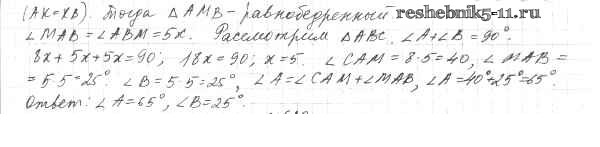 (AK=KB). Тогда △AMB – равнобедренный
reshebnik5-11.ru
∠MAB=∠ABM=5x. Рассмотрим △ABC, ∠A+∠B=90°.
8x+5x+5x=90; 18x=90; x=5. ∠CAM=8·5=40, ∠MAB=
=5·5=25°. ∠B=5·5=25°, ∠A=∠CAM+∠MAB, ∠A=40°+25°=65°.
Ответ: ∠A=65°, ∠B=25°.